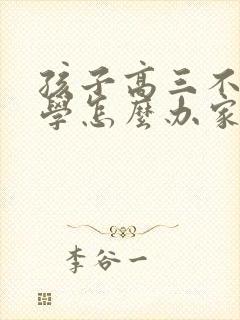 孩子高三不
學怎麼办家
李谷一